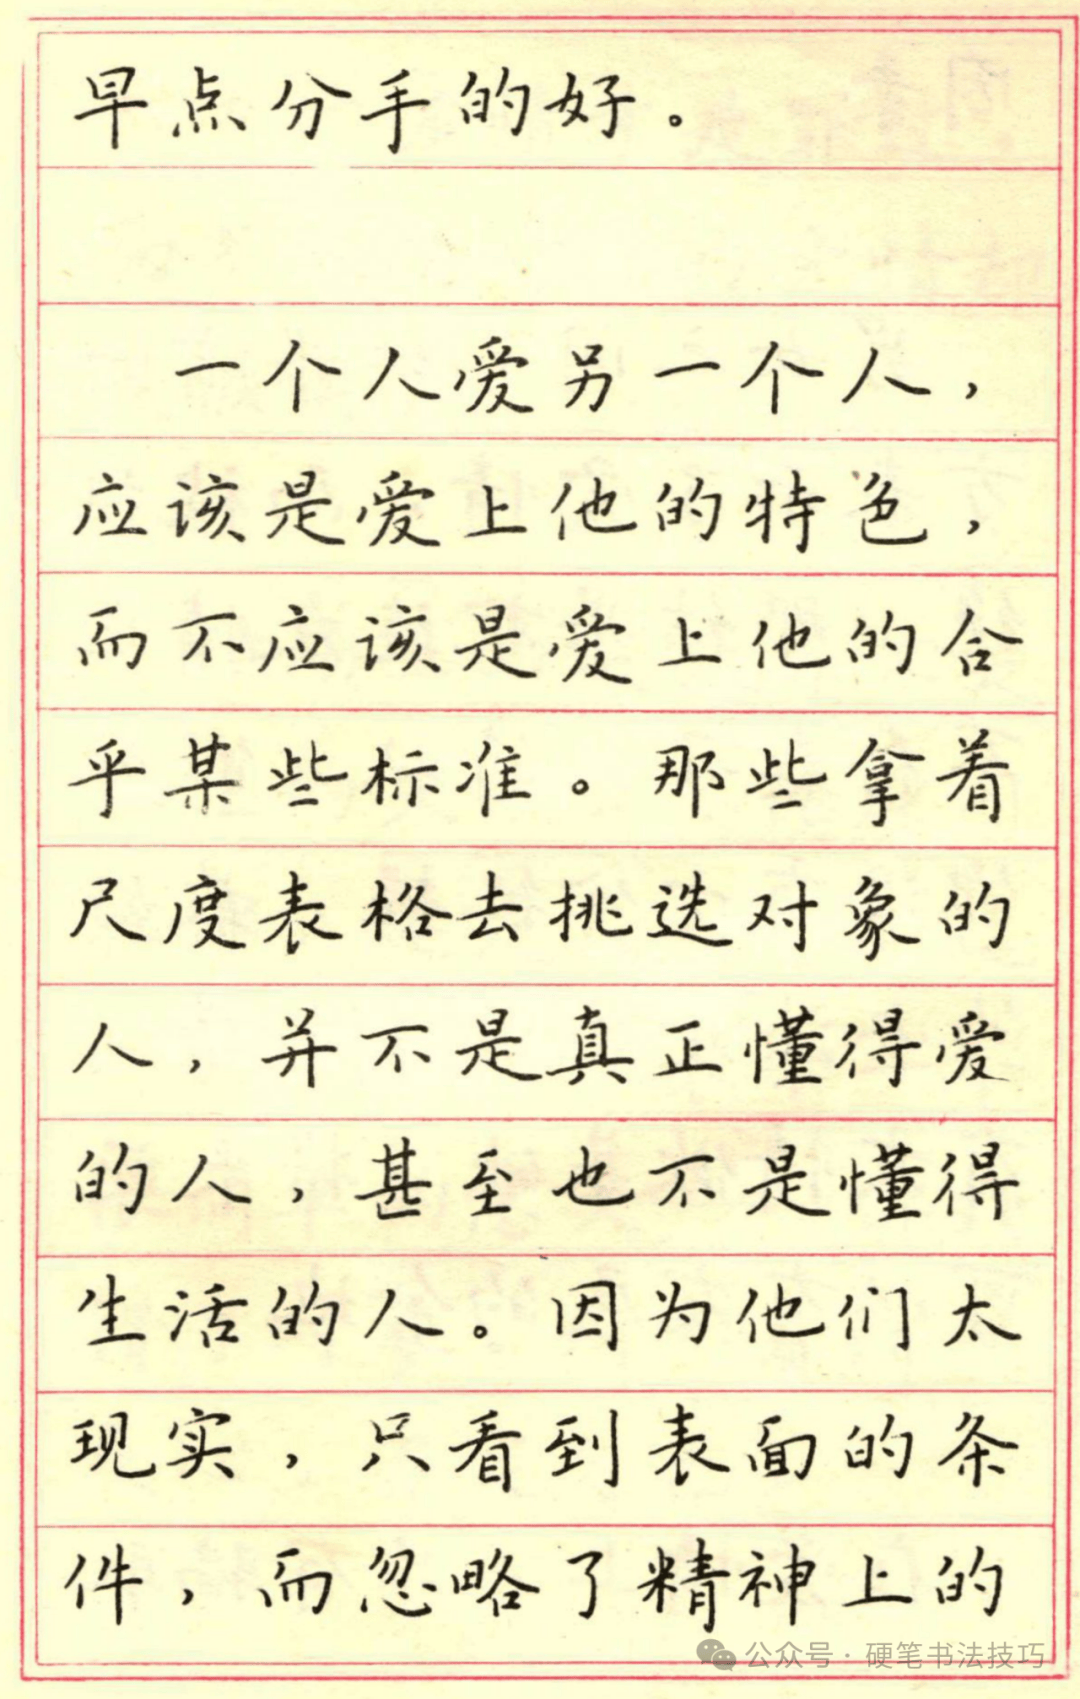 早点分手的好。
一个人爱另一个人，
应该是爱上他的特色，
而不应该是爱上他的合
乎某些标准。那些拿着
尺度表格去挑选对象的
人，并不是真正懂得爱
的人，甚至也不是懂得
生活的人。因为他们太
现实，只看到表面的条
件，而忽略了精神上的
公众号·硬笔书法技巧